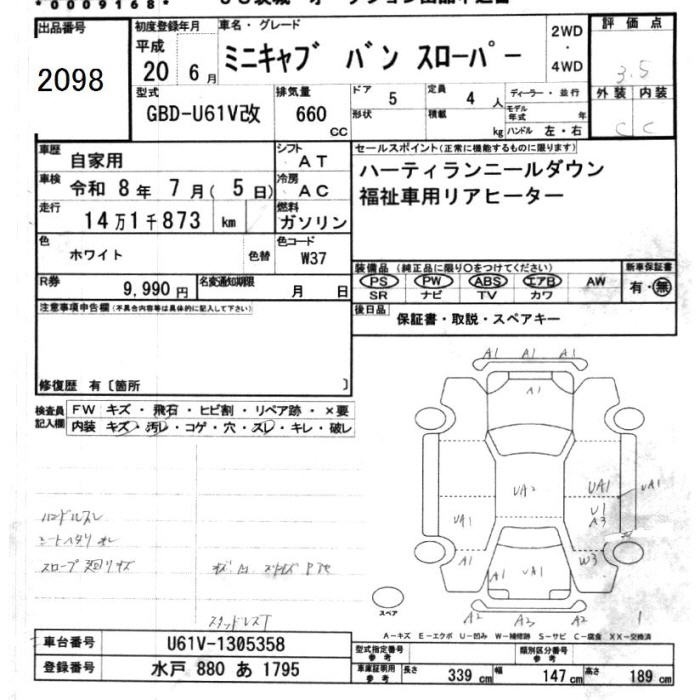 *0009168*
出品番号
2098
初度登録年月
平成
20 6月
車名・グレード
ミニキャブ バン スローパー
2WD
・
4WD
評価点
3.5
外装 内装
C C
型式
GBD-U61V改
排気量
660
CC
ドア
5
形状
定員
4人
積載
kg
ディーラー・並行
モデル年式
年
ハンドル 左・右
車歴
自家用
シフト
AT
車検
令和 8年 7月( 5日)
冷房
AC
走行
14万1千873 km
燃料
ガソリン
色
ホワイト
色替
色コード
W37
R券
9,990円
名変通知期限
月 日
セールスポイント(正常に機能するものに限ります)
ハーティランニールダウン
福祉車用リアヒーター
装備品(純正品に限り○をつけてください)
PS PW ABS エアB AW
SR ナビ TV カワ
新車保証書
有・無
後日品
保証書・取説・スペアキー
注意事項申告欄(不具合内容等は具体的に記入して下さい)
修復歴 有〔箇所 〕
検査員
記入欄
FW キズ・飛石・ヒビ割・リペア跡・×要
内装 キズ・汚レ・コゲ・穴・スレ・キレ・破レ
ハンドルスレ
シートヘタリ
スロープ廻りキズ
スタッドレスT
A1 A1 A1
A1
UA2
UA1
UA1
U1
A3
UA1
A1
W3
A1
UA1
A2 A3 A2
スペア
A-キズ E-エクボ U-凹み W-補修跡 S-サビ C-腐食 XX-交換済
車台番号
U61V-1305358
登録番号
水戸 880 あ 1795
型式指定番号
参考
類別区分番号
参考
車庫証明用
参考
長さ 339cm 幅 147cm 高さ 189cm